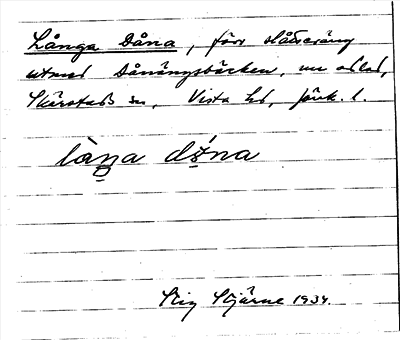 Långa Dåna, förr slåtteräng
utmed Dånängsbäcken, nu odlad,
Skärstads sn, Vista hd, Jönk. l.
låŋa då̀na
Stig Stjärne 1934.